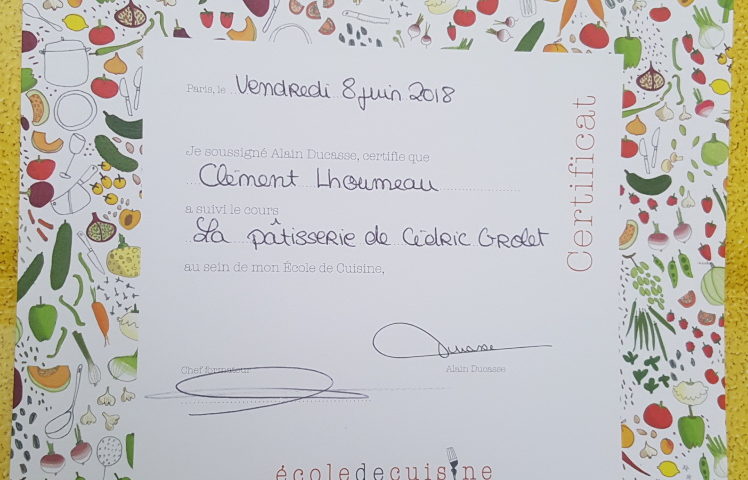 Paris, le Vendredi 8 juin 2018
Certificat
Je soussigné Alain Ducasse, certifie que
Clément Lhoumeau
a suivi le cours
La pâtisserie de Cédric Grolet
au sein de mon École de Cuisine,
Ducasse
Chef formateur
Alain Ducasse
écoledecuisine